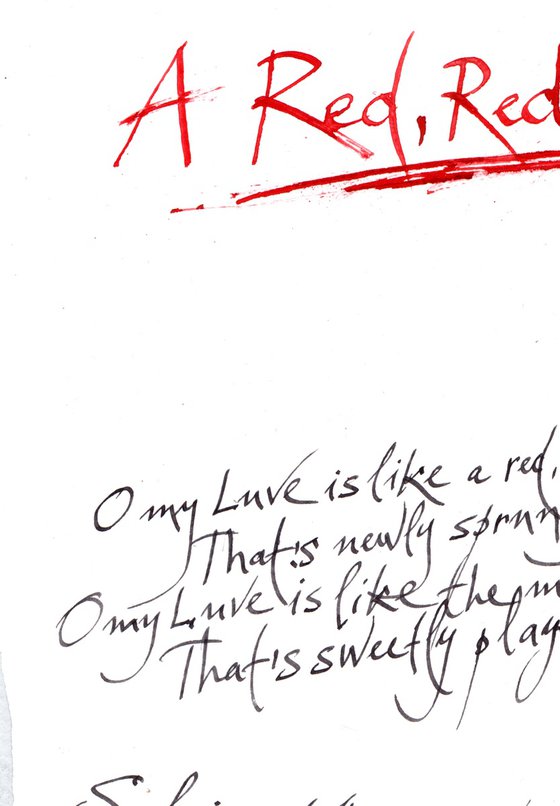 A Red, Red
O my Luve is like a red,
That's newly sprun
O my Luve is like the m
That's sweetly play